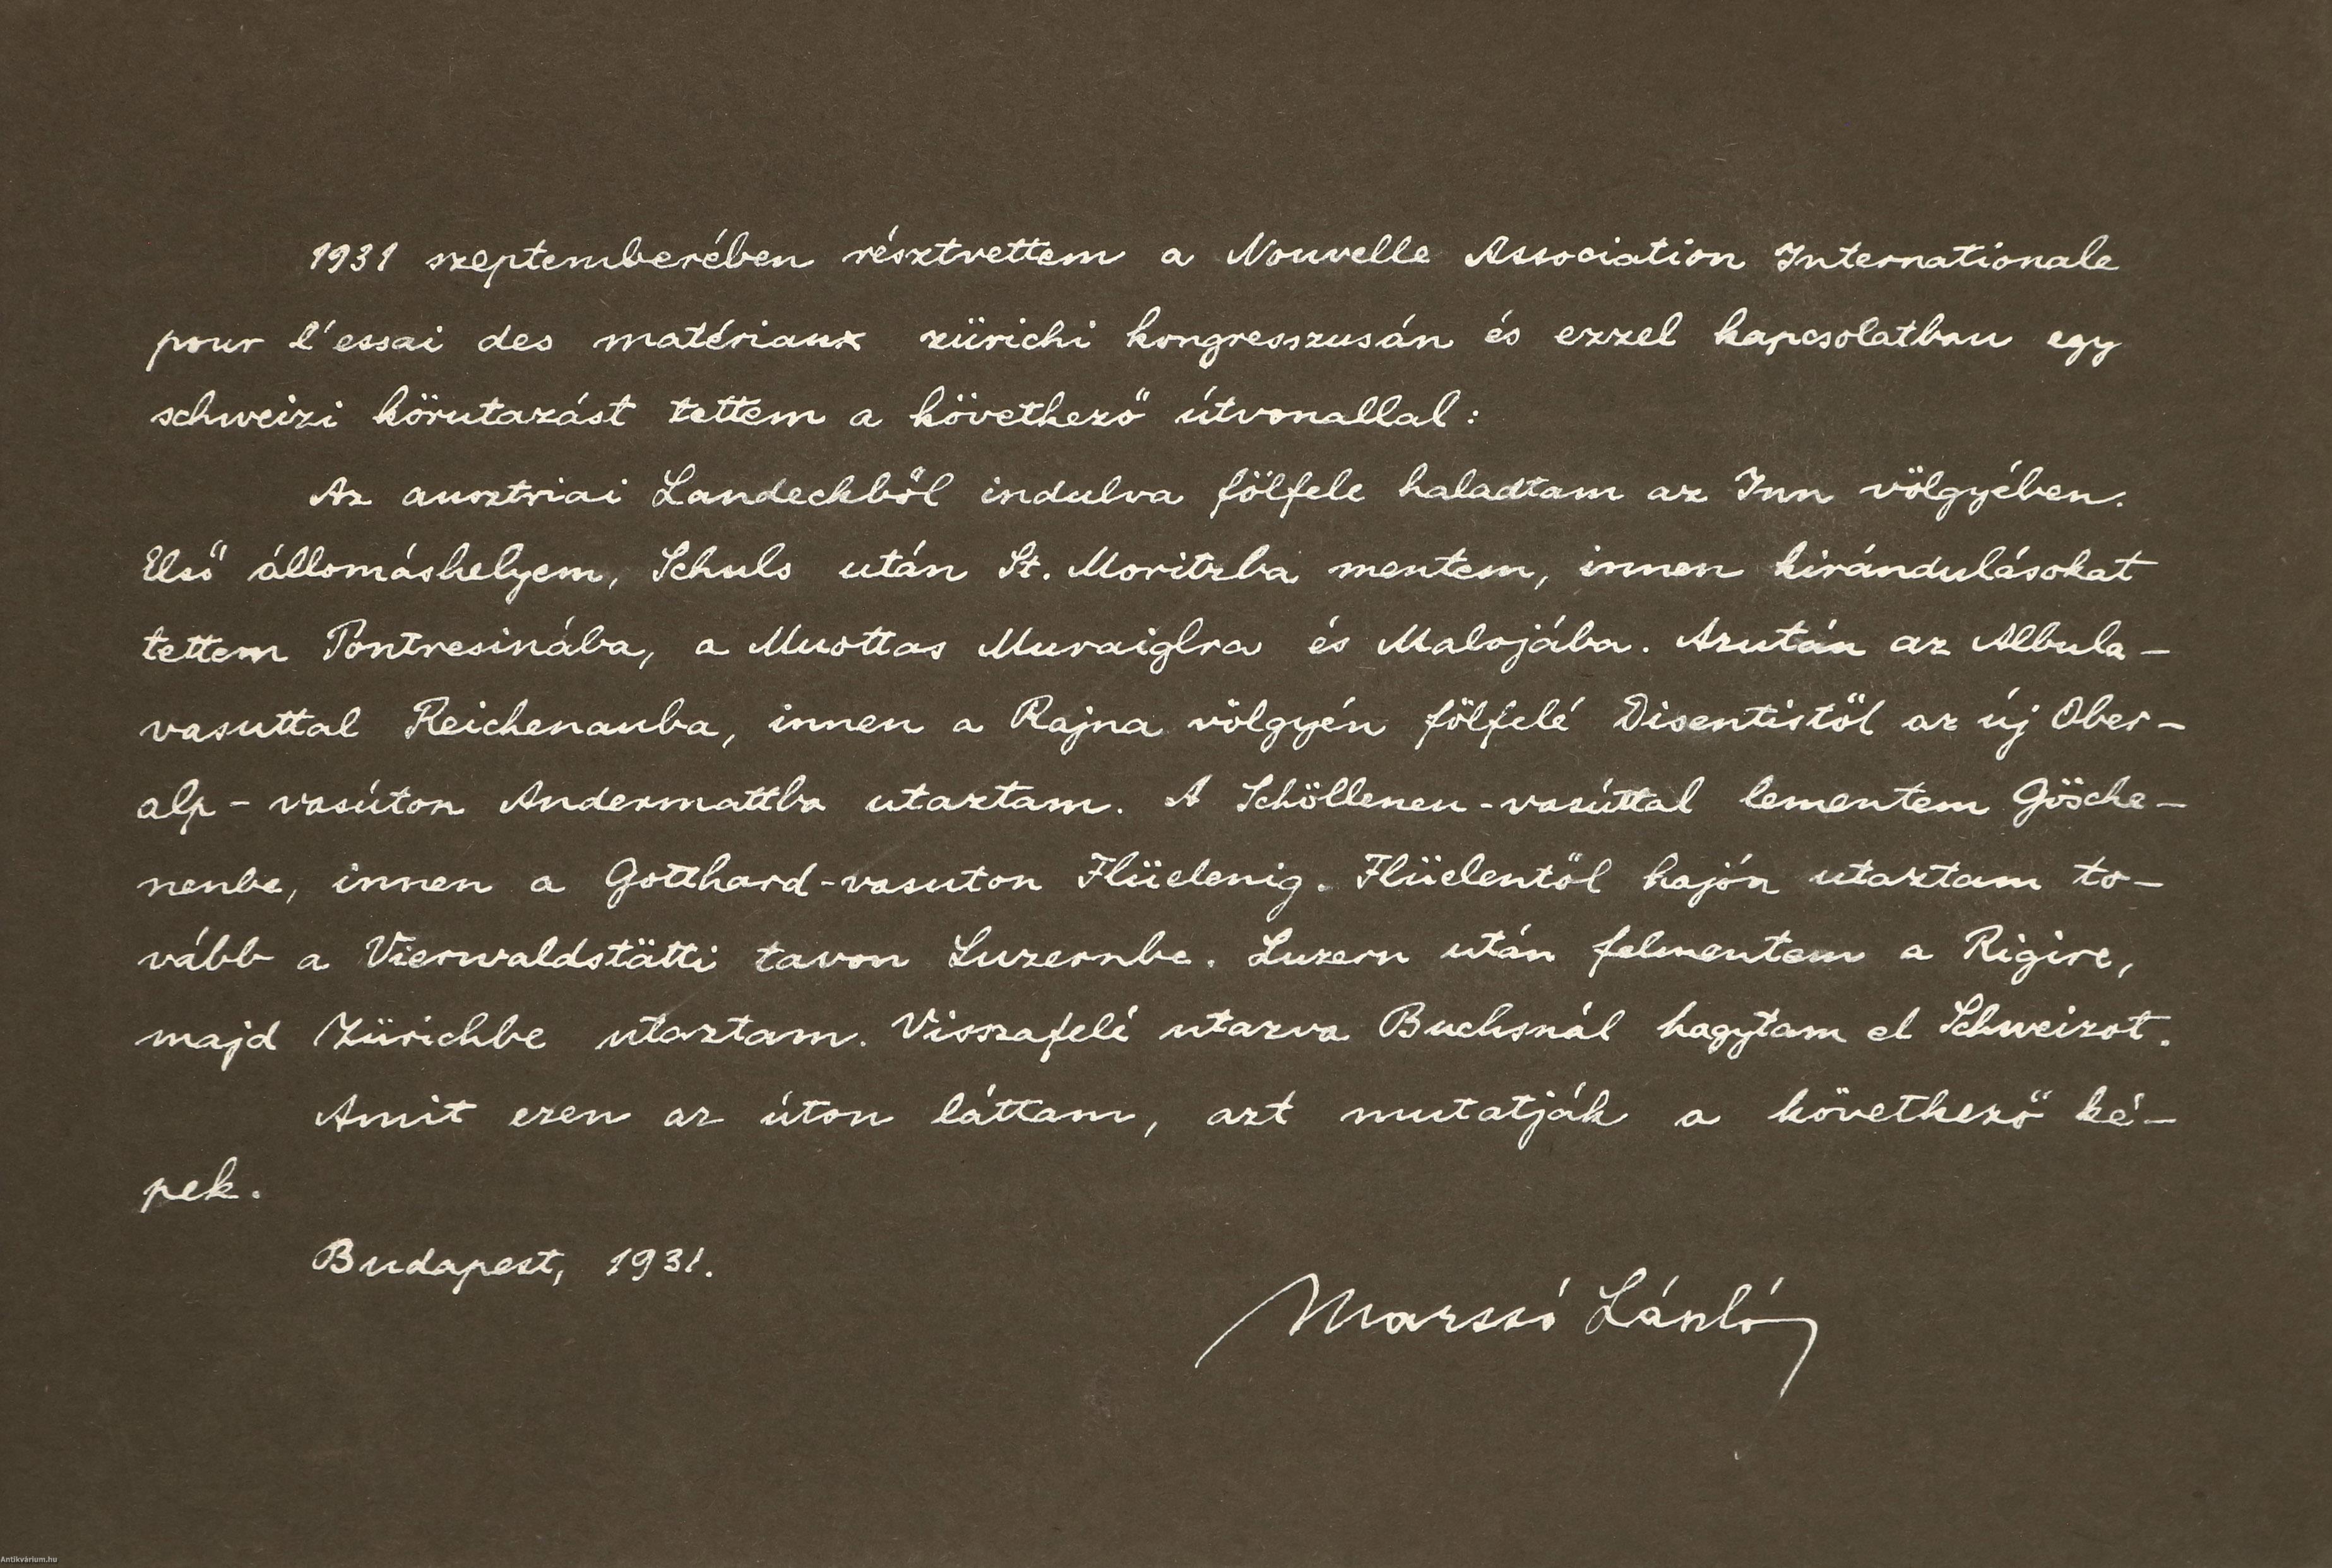 1931 szeptemberében résztvettem a Nouvelle Association Internationale
pour l'essai des matériaux zürichi kongresszusán és ezzel kapcsolatban egy
schweizi körutazást tettem a következő útvonallal:
Az ausztriai Landeckből indulva fölfele haladtam az Inn völgyében.
Első állomáshelyem, Schuls után St. Moritzba mentem, innen kirándulásokat
tettem Pontresinába, a Muottas Muraiglra és Malojába. Azután az Albula-
vasuttal Reichenauba, innen a Rajna völgyén fölfelé Disentistől az új Ober-
alp-vasúton Andermattba utaztam. A Schöllenen-vasúttal lementem Gösche-
nenbe, innen a Gotthard-vasuton Flüelenig. Flüelentől hajón utaztam to-
vább a Vierwaldstätti tavon Luzernbe. Luzern után felmentem a Rigire,
majd Zürichbe utaztam. Visszafelé utazva Buchsnál hagytam el Schweizot.
Amit ezen az úton láttam, azt mutatják a következő ké-
pek.
Budapest, 1931.
Marssó László
Antikvárium.hu